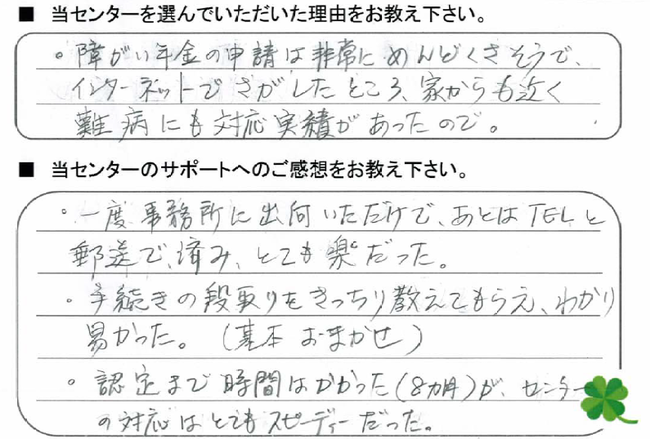 ■ 当センターを選んでいただいた理由をお教え下さい。
・障がい年金の申請は非常にめんどくさそうで、
インターネットでさがしたところ、家からも近く
難病にも対応実績があったので。
■ 当センターのサポートへのご感想をお教え下さい。
・一度事務所に出向いただけで、あとはTELと
郵送で済み、とても楽だった。
・手続きの段取りをきっちり教えてもらえ、わかり
易かった。(基本おまかせ)
・認定まで時間はかかった(8カ月)が、センター
の対応はとてもスピーディーだった。